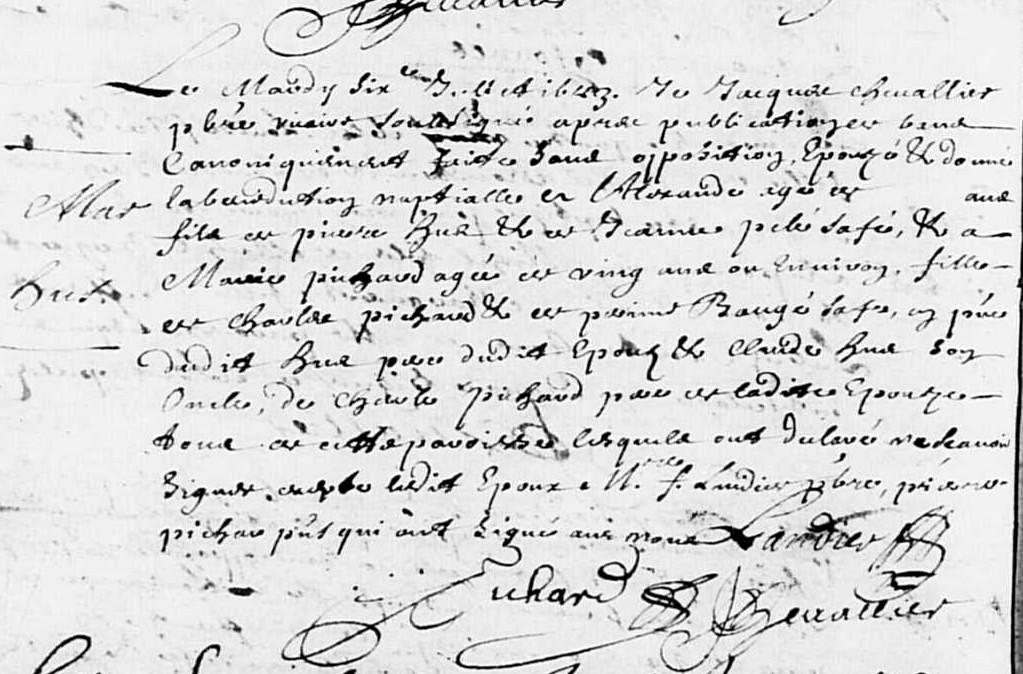 Chevallier
Le Mardy six Je Jacques Chevallier
pbre vicaire soussigné apres publication de bans
Canoniquement faitte sans opposition, Epouzé & donné
la benediction nuptialle a Alexandre agé de ans
fils de pierre Hus & de Jeanne sa fe, & a
Marie pichard agée de ving ans ou environ, fille
de Charles pichard & de perinne Baugé sa fe, en pnce
dudit Hus pere dudit Epoux & Claude Hus son
Oncle, de Charle pichard pere de ladite Epouze
tous de cette paroisse lesquels ont declaré ne scavoir
signer, ledit Epoux M. f. Landier pbre, pierre
pichar pnts qui ont signé avec nous Landier
Pichard J Chevallier
Mar
Hus